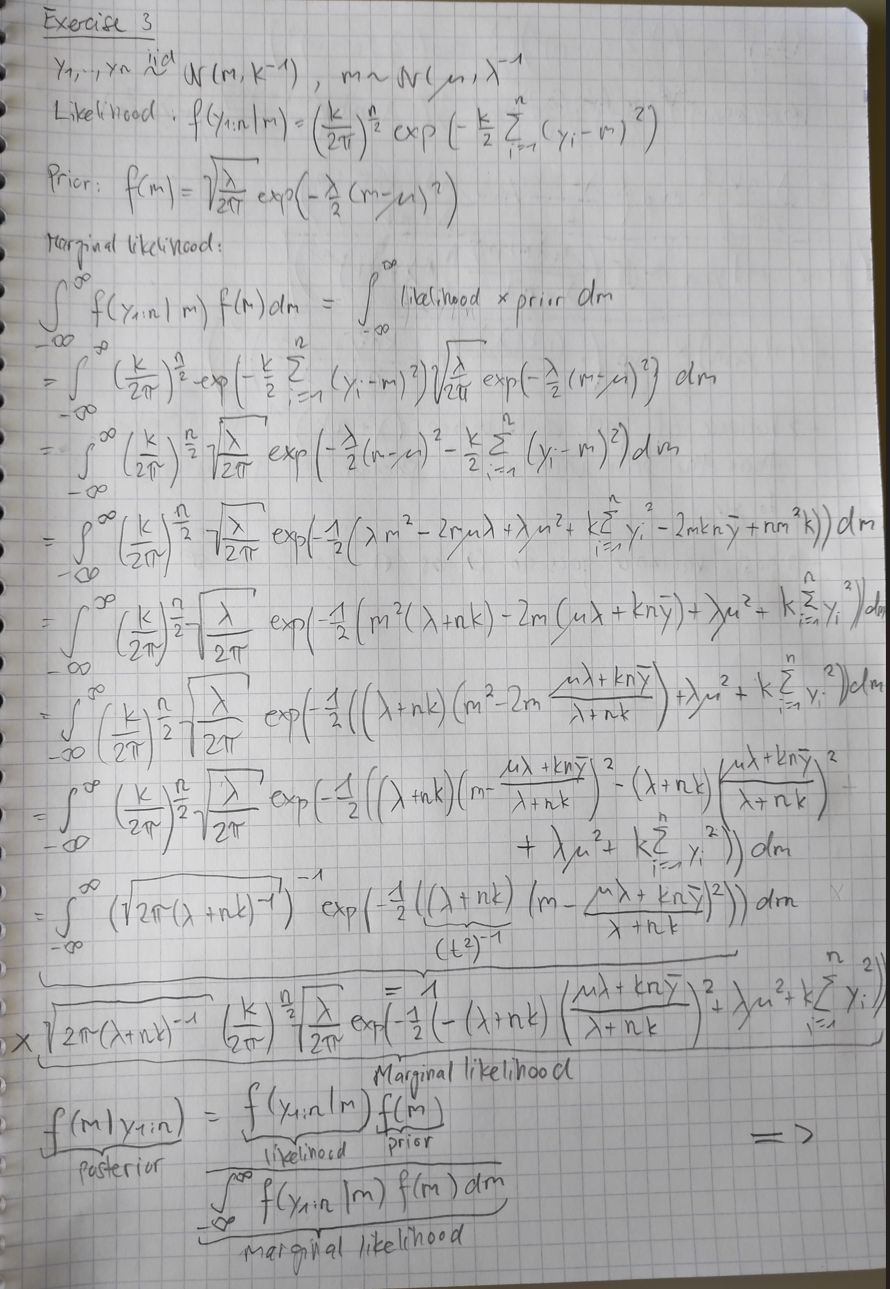 Exercise 3
y₁,..,yₙ ~iid N(m, k⁻¹) , m ~ N(μ, λ⁻¹
Likelihood: f(y₁:ₙ|m) = (k/2π)^(n/2) exp(-k/2 Σ_{i=1}^n (yᵢ-m)²)
Prior: f(m) = √(λ/2π) exp(-λ/2 (m-μ)²)
Marginal likelihood:
∫_{-∞}^{∞} f(y₁:ₙ|m) f(m) dm = ∫_{-∞}^{∞} likelihood × prior dm
= ∫_{-∞}^{∞} (k/2π)^(n/2) exp(-k/2 Σ_{i=1}^n (yᵢ-m)²) √(λ/2π) exp(-λ/2 (m-μ)²) dm
= ∫_{-∞}^{∞} (k/2π)^(n/2) √(λ/2π) exp(-λ/2 (m-μ)² - k/2 Σ_{i=1}^n (yᵢ-m)²) dm
= ∫_{-∞}^{∞} (k/2π)^(n/2) √(λ/2π) exp(-1/2 (λm² - 2mμλ + λμ² + k Σ_{i=1}^n yᵢ² - 2mknȳ + nm²k)) dm
= ∫_{-∞}^{∞} (k/2π)^(n/2) √(λ/2π) exp(-1/2 (m²(λ+nk) - 2m(μλ + knȳ) + λμ² + k Σ_{i=1}^n yᵢ²)) dm
= ∫_{-∞}^{∞} (k/2π)^(n/2) √(λ/2π) exp(-1/2 ((λ+nk)(m² - 2m (μλ+knȳ)/(λ+nk)) + λμ² + k Σ_{i=1}^n yᵢ²)) dm
= ∫_{-∞}^{∞} (k/2π)^(n/2) √(λ/2π) exp(-1/2 ((λ+nk)(m - (μλ+knȳ)/(λ+nk))² - (λ+nk)((μλ+knȳ)/(λ+nk))²
+ λμ² + k Σ_{i=1}^n yᵢ²)) dm
= ∫_{-∞}^{∞} (√(2π(λ+nk)⁻¹))⁻¹ exp(-1/2 ((λ+nk) (m - (μλ+knȳ)/(λ+nk))²)) dm
(t²)⁻¹
= 1
× √(2π(λ+nk)⁻¹) (k/2π)^(n/2) √(λ/2π) exp(-1/2 (-(λ+nk) ((μλ+knȳ)/(λ+nk))² + λμ² + k Σ_{i=1}^n yᵢ²))
Marginal likelihood
f(m|y₁:ₙ) = f(y₁:ₙ|m) f(m)
posterior likelihood prior =>
∫_{-∞}^{∞} f(y₁:ₙ|m) f(m) dm
Marginal likelihood